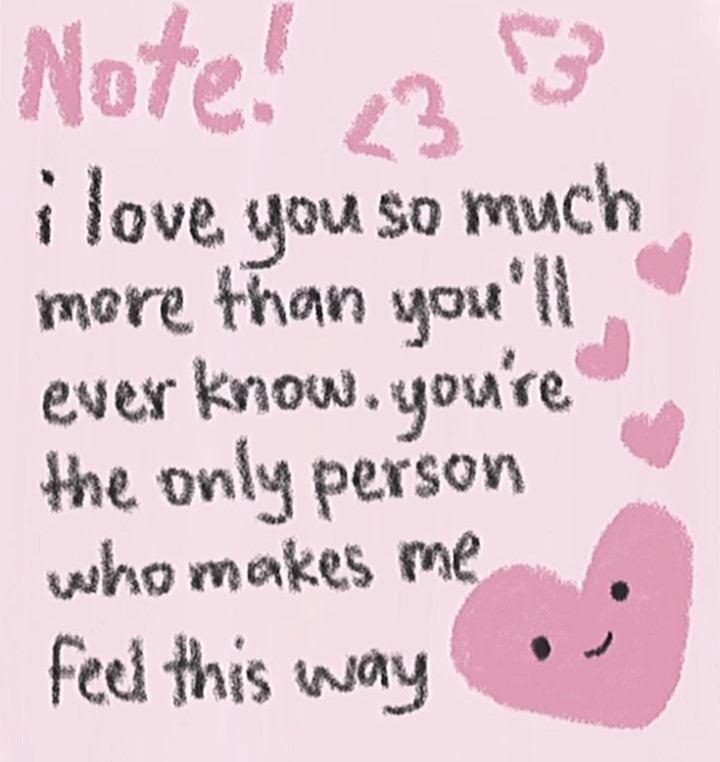 Note! <3 <3
i love you so much
more than you'll
ever know. you're
the only person
who makes me
feel this way